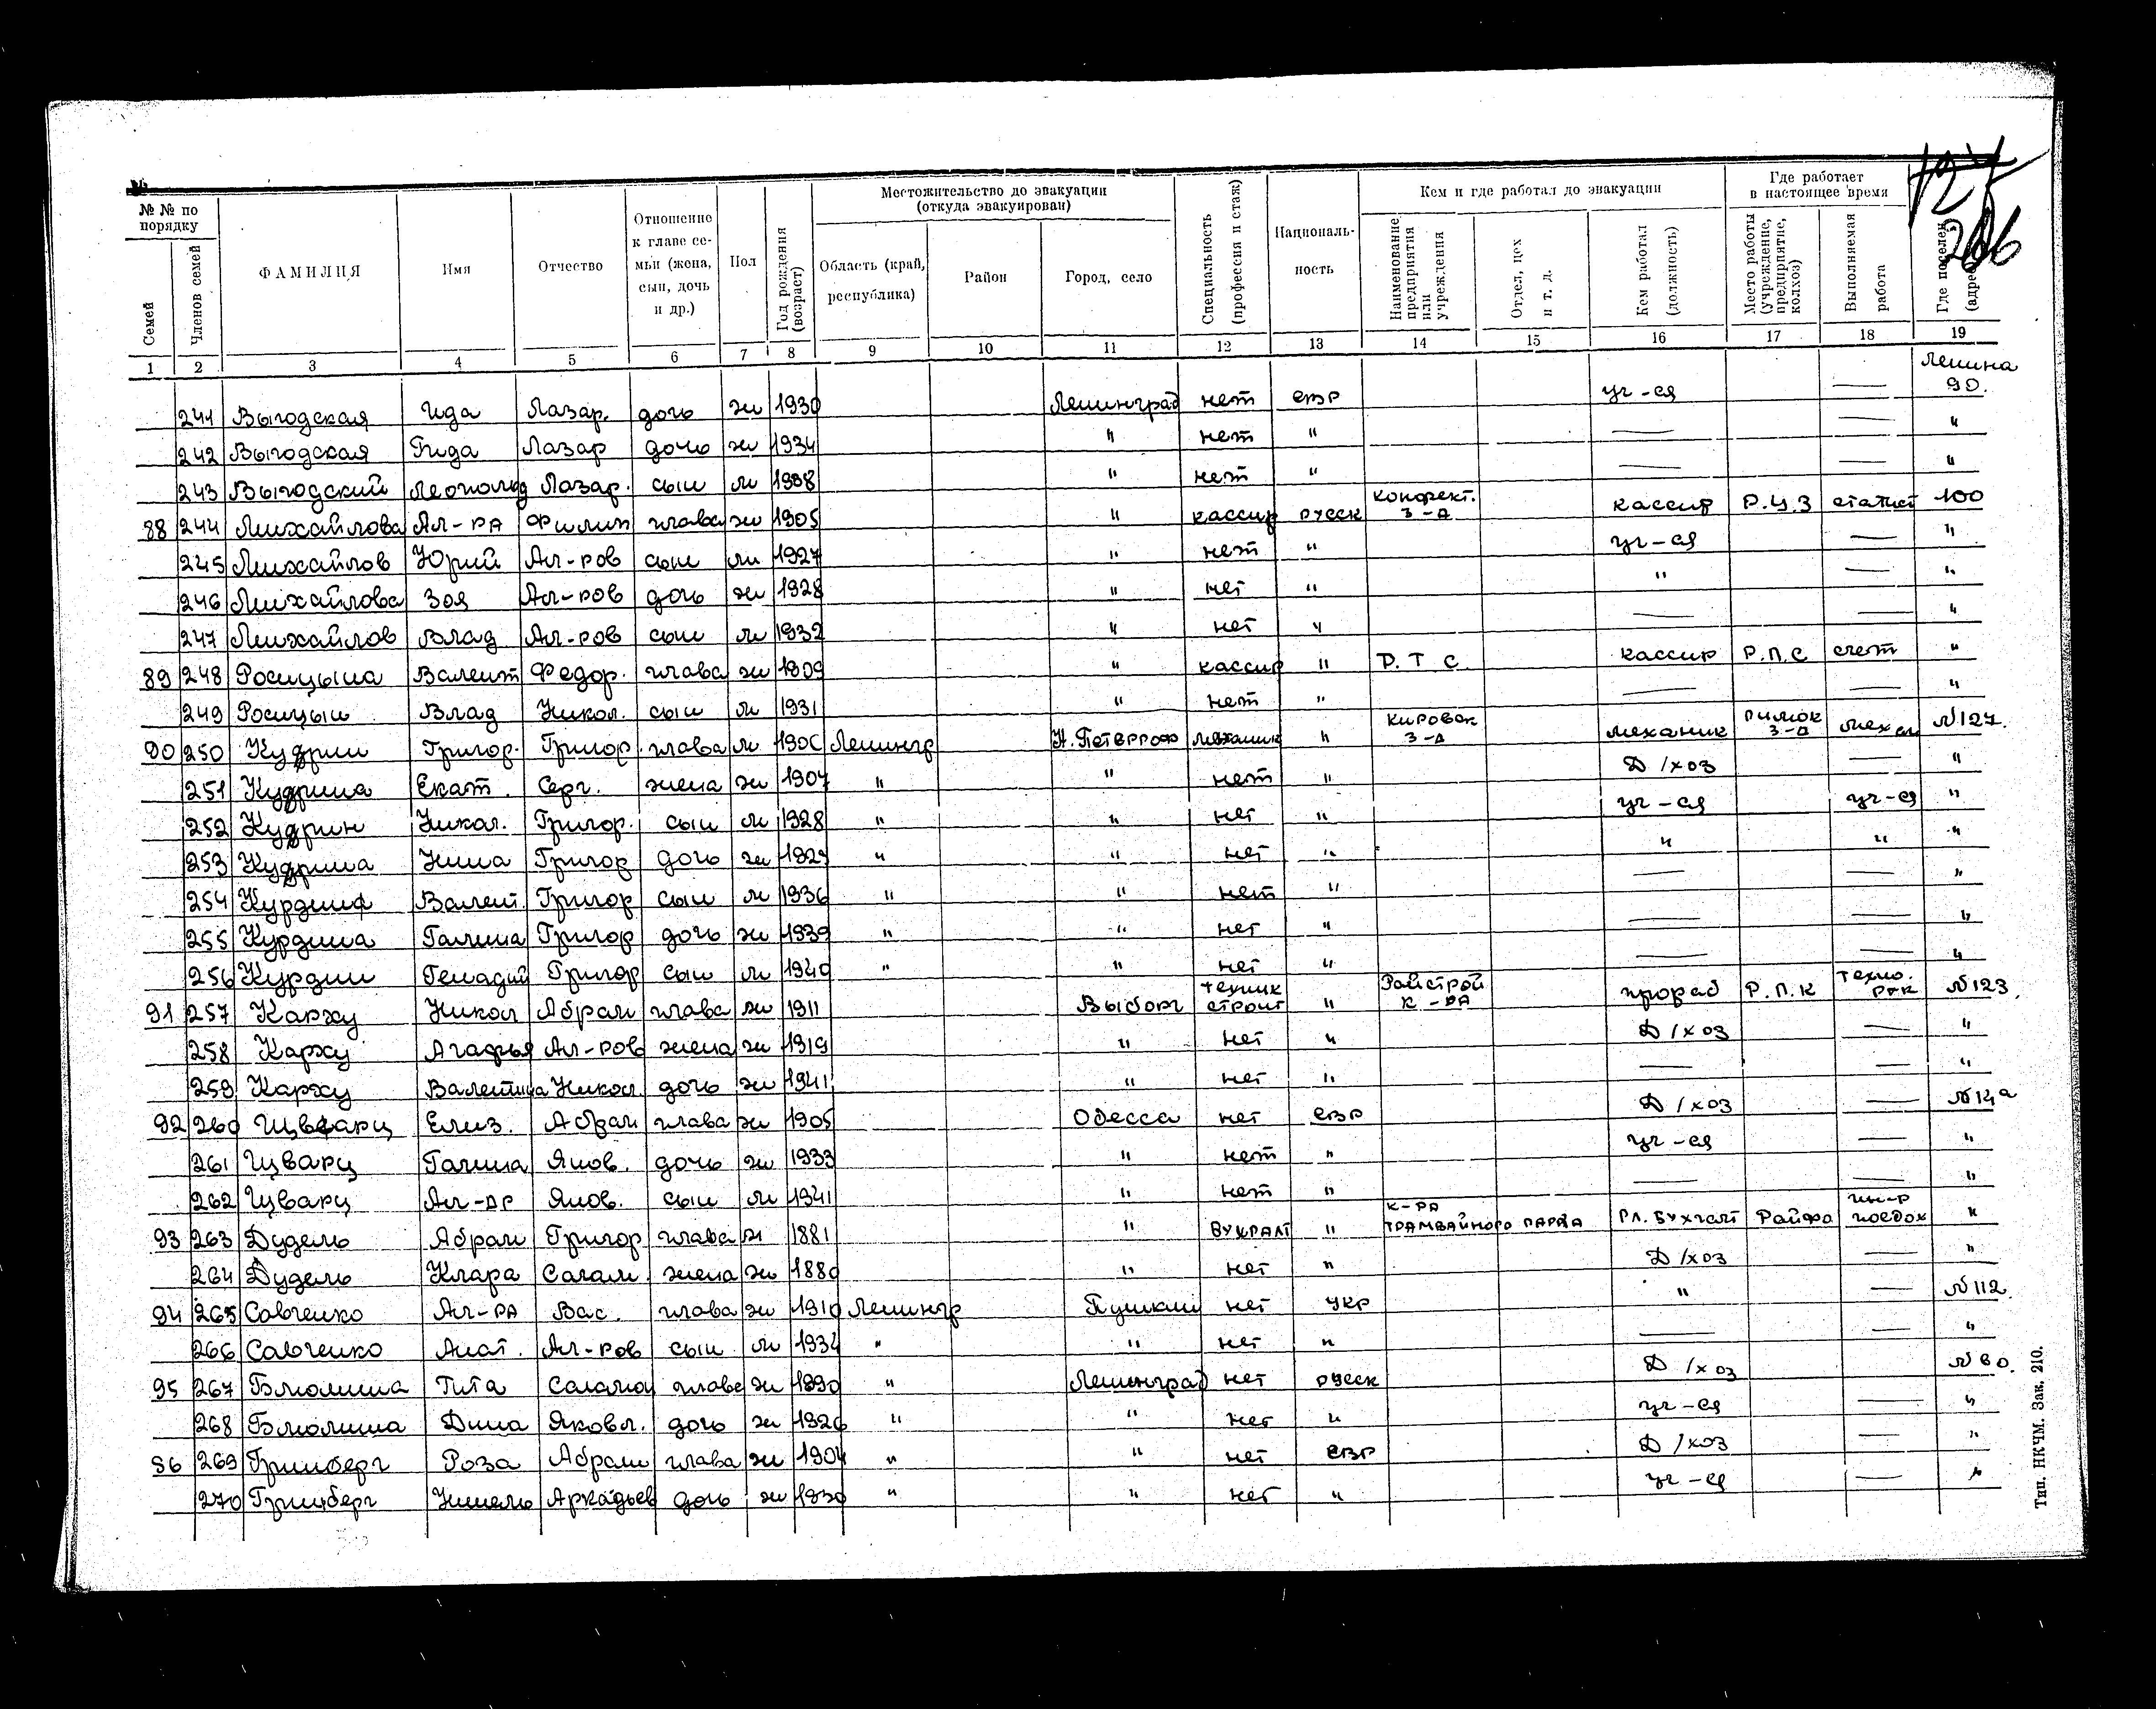 127
206
№ № по порядку
Семей
Членов семей
ФАМИЛИЯ
Имя
Отчество
Отношение к главе семьи (жена, сын, дочь и др.)
Пол
Год рождения (возраст)
Местожительство до эвакуации (откуда эвакуирован)
Область (край, республика)
Район
Город, село
Специальность (профессия и стаж)
Националь-
ность
Кем и где работал до эвакуации
Наименование предприятия или учреждения
Отдел, цех и т. д.
Кем работал (должность)
Где работает в настоящее время
Место работы (учреждение, предприятие, колхоз)
Выполняемая работа
Где поселен (адрес)
1 2 3 4 5 6 7 8 9 10 11 12 13 14 15 16 17 18 19
241 Выгодская Ида Лазар. дочь ж 1930 Ленинград нет евр уч-ся — Ленина 90.
242 Выгодская Гида Лазар дочь ж 1934 " нет " — — "
243 Выгодский Леопольд Лазар. сын м 1938 " нет " — — "
88 244 Михайлова Ал-ра Филип глава ж 1905 " кассир русск конфект. з-д кассир Р.Ц.З статист 100
245 Михайлов Юрий Ал-ров сын м 1927 " нет " уч-ся — "
246 Михайлова Зоя Ал-ров дочь ж 1928 " нет " " — "
247 Михайлов Влад Ал-ров сын м 1932 " нет " — — "
89 248 Росицына Валент Федор. глава ж 1909 " кассир " Р.Т.С кассир Р.П.С счет "
249 Росицын Влад Никол. сын м 1931 " нет " — — "
90 250 Кудрин Григор. Григор. глава м 190 Ленингр Н. Петергоф механик " Кировск з-д механик з-д механ №127.
251 Кудрина Екат. Серг. жена ж 1907 " " нет " Д/хоз — "
252 Кудрин Никол. Григор. сын м 1928 " " нет " уч-ся уч-ся "
253 Кудрина Нина Григор дочь ж 1929 " " нет " " " "
254 Курдин Вален. Григор сын м 1936 " " нет " — "
255 Курдина Галина Григор дочь ж 1939 " " нет " — — "
256 Курдин Генадий Григор сын м 1940 " " нет " — — "
91 257 Карху Никол Абрам глава ж 1911 Выборг техник строит " Райстрой к-ра прораб Р.П.К техно. рук №123.
258 Карху Агафья Ал-ров жена ж 1919 " нет " Д/хоз — "
259 Карху Валентина Никол. дочь ж 1941 " нет " — — "
92 260 Щварц Елиз. Абрам глава ж 1905 Одесса нет евр Д/хоз — №14а
261 Щварц Галина Яков. дочь ж 1933 " нет " уч-ся — "
262 Щварц Ал-др Яков. сын м 1941 " нет " — — "
93 263 Дудель Абрам Григор глава м 1881 " бухгалт " к-ра трамвайного парка гл. бухгалт Райфо ин-р "
264 Дудель Клара Салам. жена ж 1880 " нет " Д/хоз — "
94 265 Савченко Ал-ра Вас. глава ж 1910 Ленингр Пушкин нет укр " — №112.
266 Савченко Анат. Ал-ров сын м 1934 " " нет " — — "
95 267 Блюмина Гита Саламон глава ж 1890 " Ленинград нет русск Д/хоз №60.
268 Блюмина Дина Яковл. дочь ж 1926 " " нет " уч-ся — "
96 269 Гринберг Роза Абрам глава ж 1904 " " нет евр Д/хоз — "
270 Гринберг Нинель Аркадьев дочь ж 1930 " " нет " уч-ся — "
Тип. НКЧМ. Зак. 210.